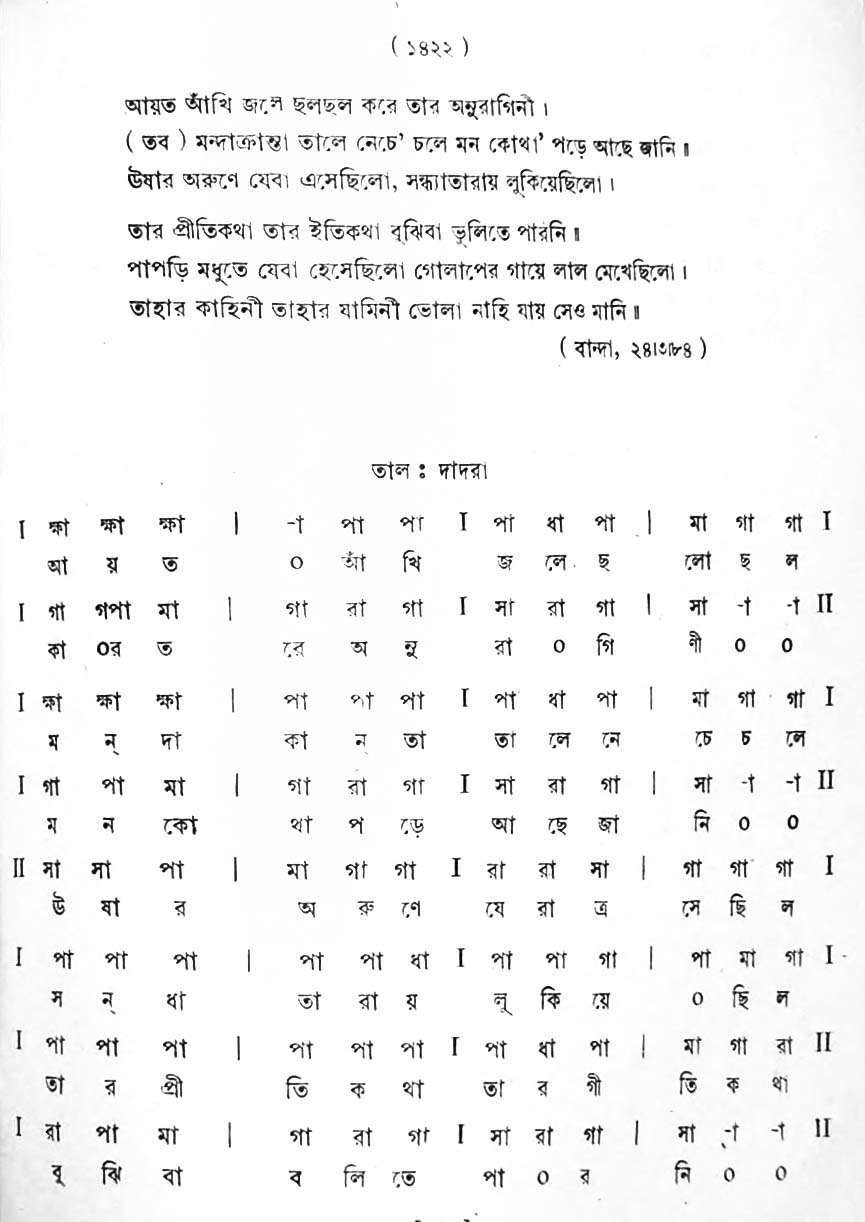 ( ১৪২২ )
আয়ত আঁখি জলে ছলছল করে তার অনুরাগিনী ।
( তব ) মন্দাক্রান্তা তালে নেচে’ চলে মন কোথা’ পড়ে আছে জানি ॥
ঊষার অরুণে যেবা এসেছিলো, সন্ধ্যাতারায় লুকিয়েছিলো ।
তার প্রীতিকথা তার ইতিকথা বুঝিবা ভুলিতে পারনি ॥
পাপড়ি মধুতে যেবা হেসেছিলো গোলাপের গায়ে লাল মেখেছিলো ।
তাহার কাহিনী তাহার যামিনী ভোলা নাহি যায় সেও মানি ॥
( বান্দা, ২৪।৩।৮৪ )
তাল : দাদরা
I হ্মা হ্মা হ্মা | -া পা পা I পা ধা পা | মা গা গা I
আ য় ত ০ আঁ খি জ লে ছ লো ছ ল
I গা গপা মা | গা রা গা I সা রা গা | সা -া -া II
কা ০র ত রে অ নু রা ০ গি ণী ০ ০
I হ্মা হ্মা হ্মা | পা পা পা I পা ধা পা | মা গা গা I
ম ন্ দা কা ন তা তা লে নে চে চ লে
I গা পা মা | গা রা গা I সা রা গা | সা -া -া II
ম ন কো থা প ড়ে আ ছে জা নি ০ ০
II সা সা পা | মা গা গা I রা রা সা | গা গা গা I
উ ষা র অ রু ণে যে রা ত্র সে ছি ল
I পা পা পা | পা পা ধা I পা পা গা | পা মা গা I
স ন্ ধা তা রা য় লু কি য়ে ০ ছি ল
I পা পা পা | পা পা পা I পা ধা পা | মা গা রা II
তা র প্রী তি ক থা তা র গী তি ক থা
I রা পা মা | গা রা গা I সা রা গা | সা -া -া II
বু ঝি বা ব লি তে পা ০ র নি ০ ০